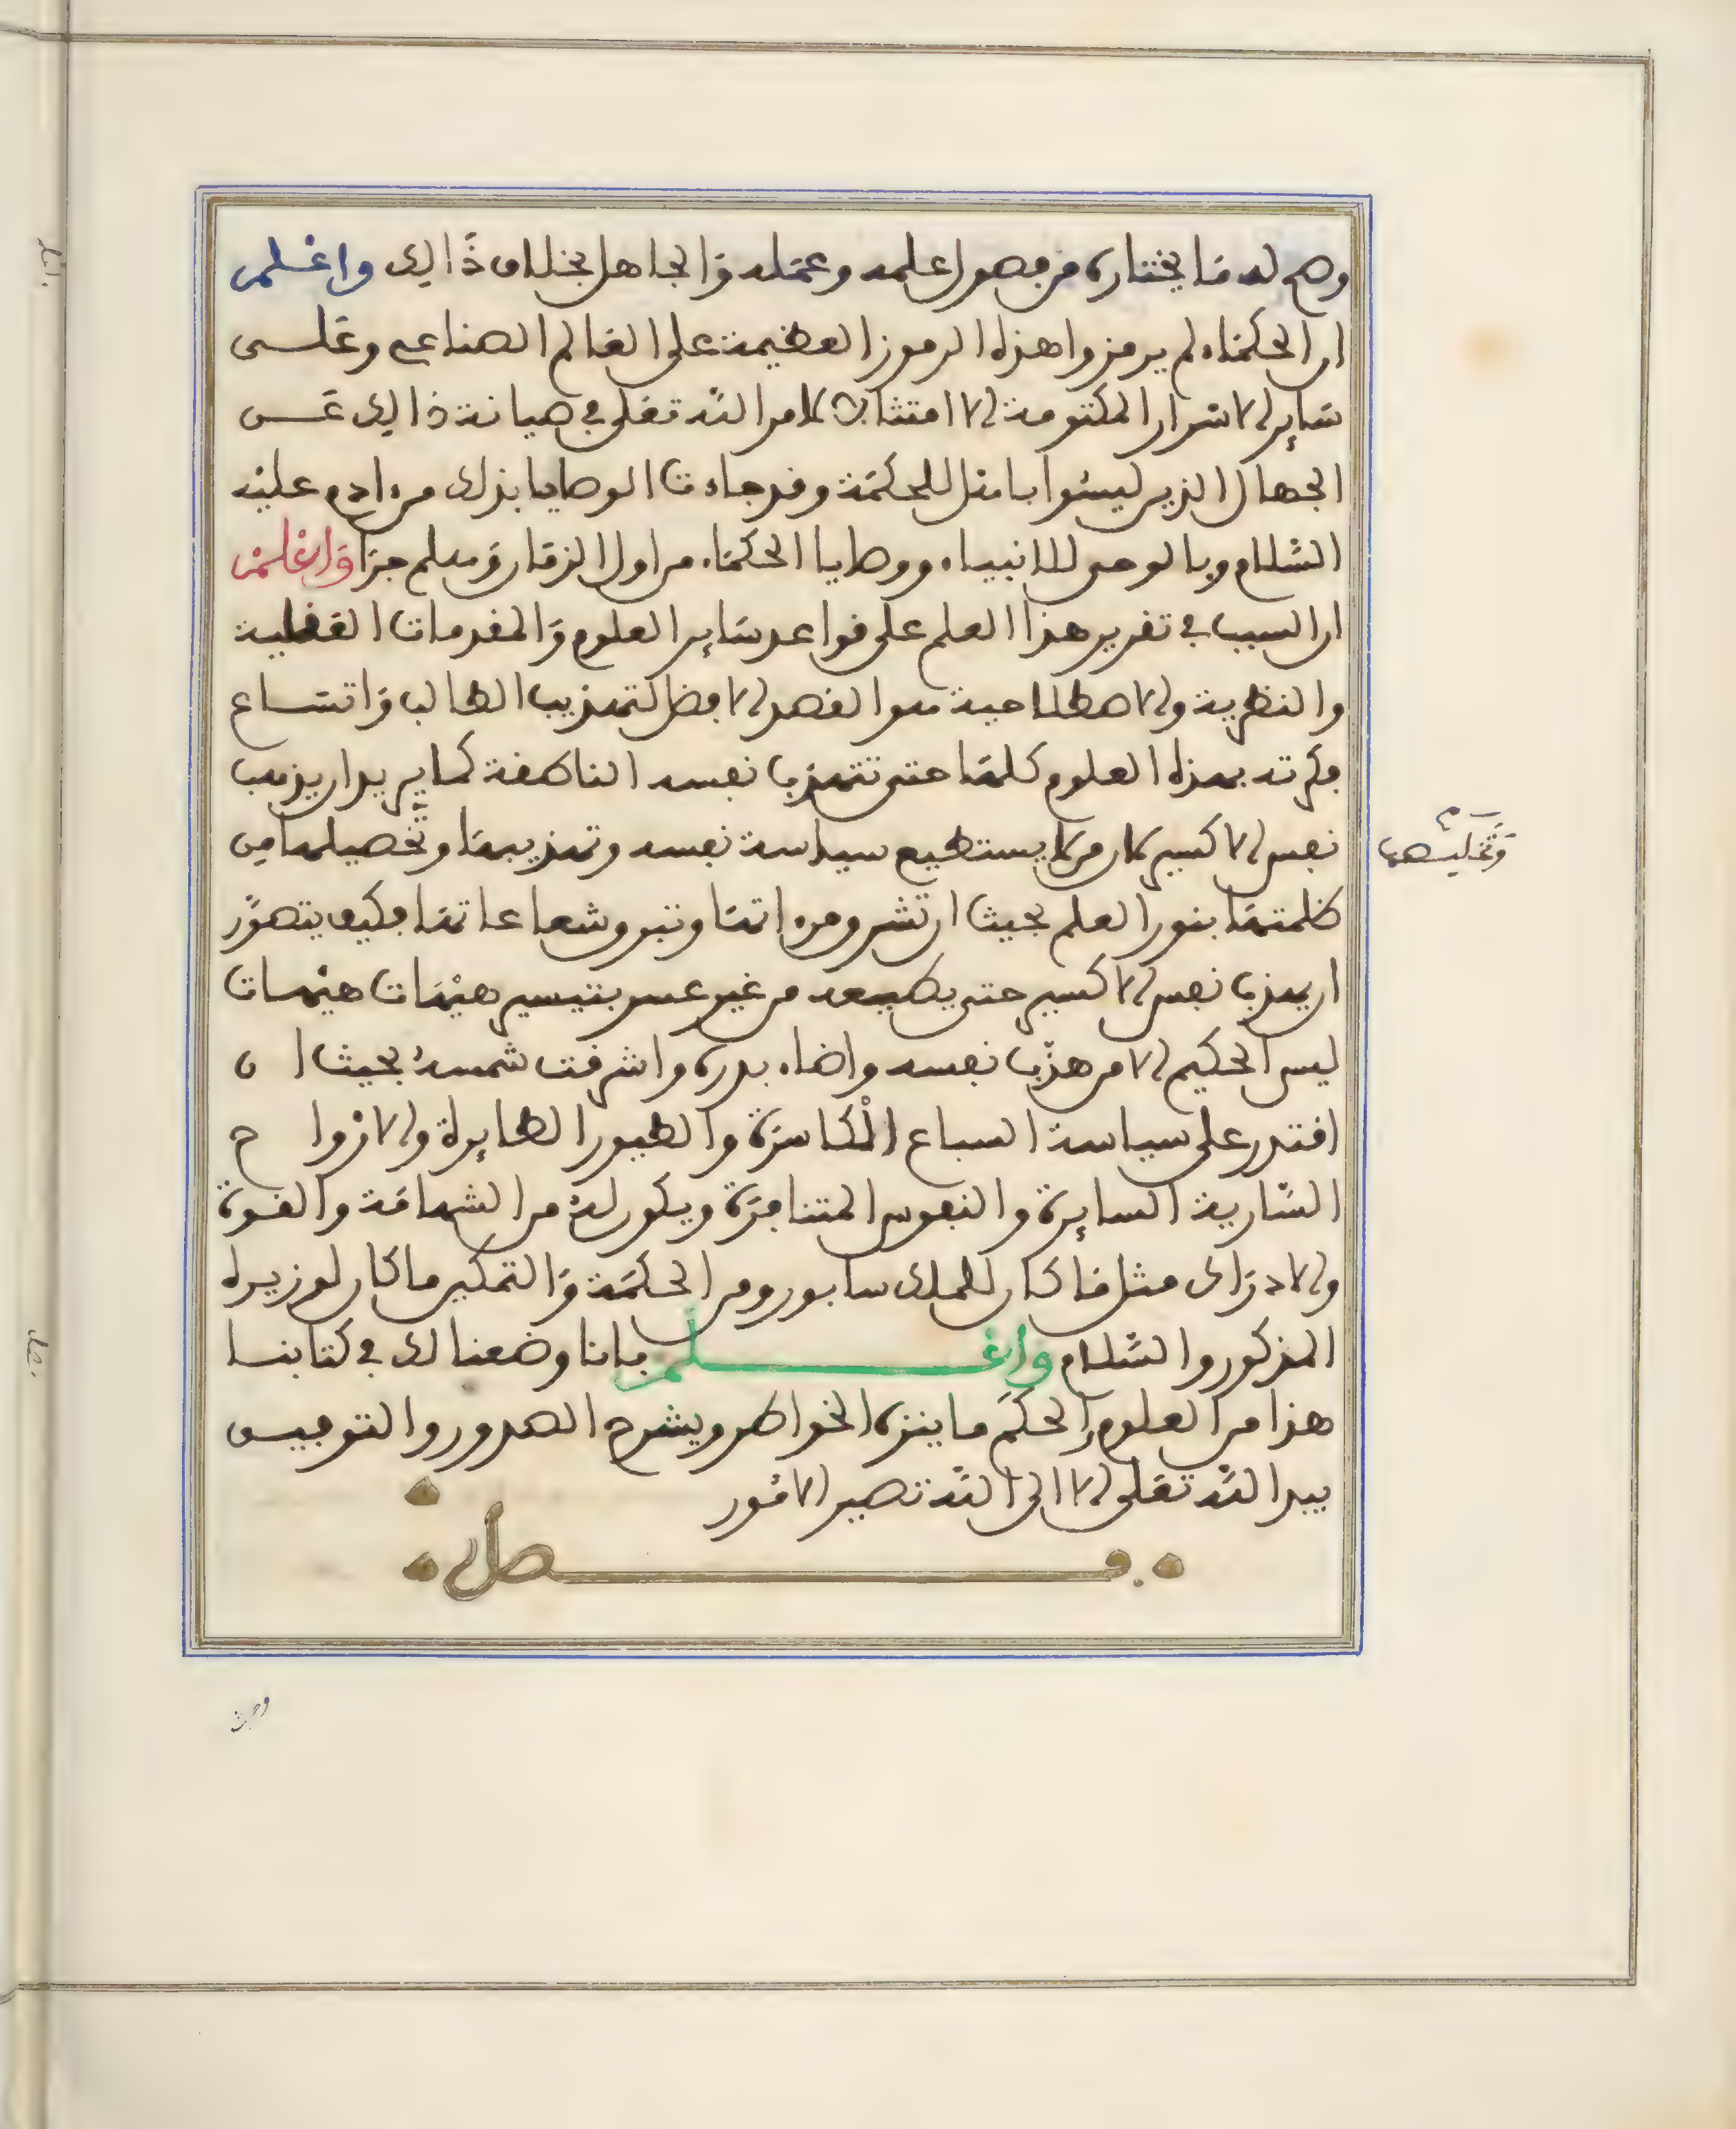 وصح له ما يختاره من فصول علمه وعمله والجاهل بخلاف ذالك واعلم
ان الحكماء لم يرمزوا هذه الرموز العظيمة على العالم الصناعي وعلى
ساير الاسرار المكتومة الا امتثالا لامر الله تعلى في صيانة ذالك عن
الجهال الذين ليسوا باهل للحكمة وقد جاءت الوصايا بذلك من ادم عليه
السلام وبالوحي للانبياء ووصايا الحكماء من اول الزمان وهلم جرا واعلم
ان السبب في تقرير هذا العلم على قواعد ساير العلوم والمقدمات العقلية
والنظرية والاصطلاحية هو القصد الافضل لتهذيب الطالب واتساع
فكرته بهذه العلوم كلها حتى تتهذب نفسه الناطقة كما يريد ان يذهب
نفس الاكسير لان من لا يستطيع سياسة نفسه وتهذيبها وتحصيلها من
وتخليصها
ظلمتها بنور العلم بحيث ان تشرق مرءاتها وتبرق شعاعاتها فكيف يتصور
ان يهذب نفس الاكسير حتى يطيعه من غير عسر بتيسير هيهات هيهات
ليس الحكيم الا من هذب نفسه واضاء بدره واشرقت شمسه بحيث ان
اقتدر على سياسة السباع الكاسرة والطيور الطايرة والارواح
السارية السايرة والنفوس المتنافرة ويكون له من الشهامة والقوة
والادراك مثل ما كان للملك سابور ومن الحكمة والتمكين ما كان لوزيره
المذكور والسلام واعلم باننا وضعنا لك في كتابنا
هذا من العلوم والحكم ما ينزه الخواطر ويشرح الصدور والتوفيق
بيد الله تعلى الا الى الله تصير الامور
فصل